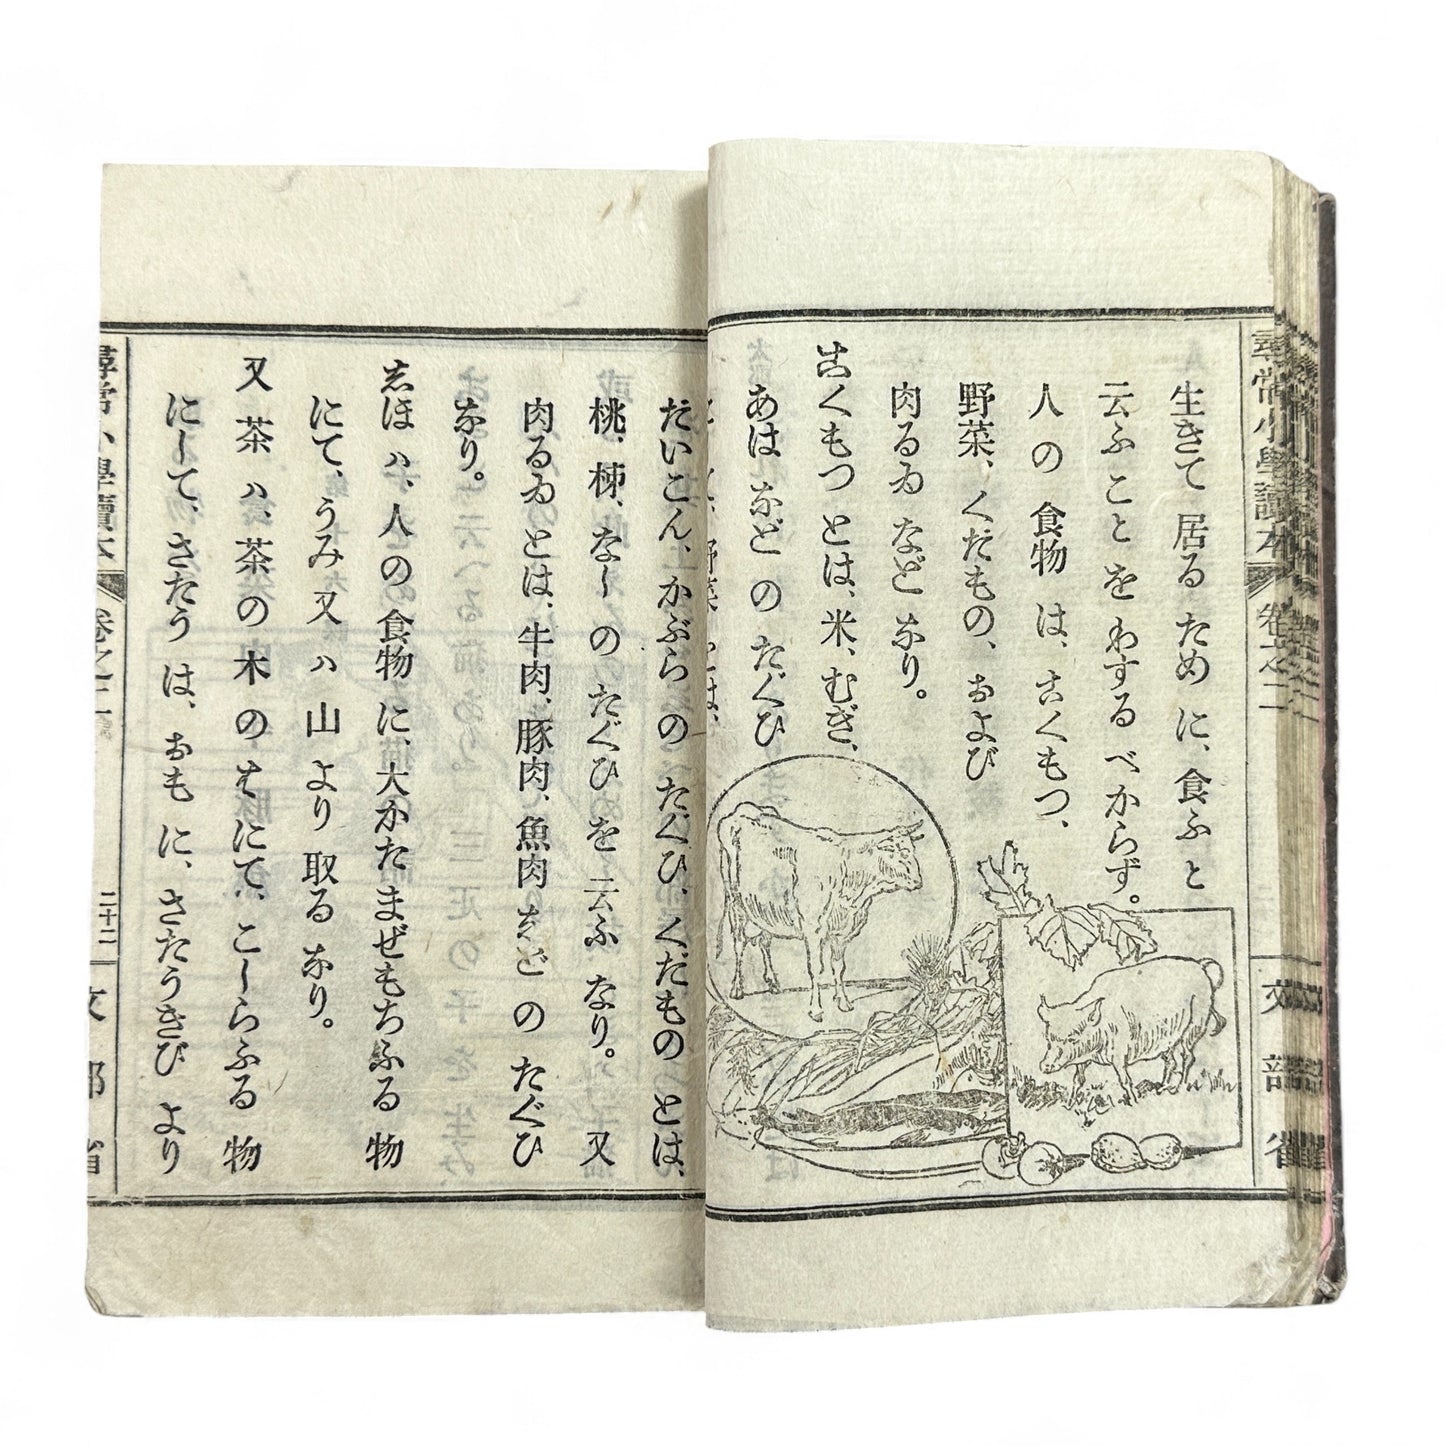 尋常小學讀本 卷之二 文部省
生きて 居る ため に、食ふ と
云ふ こと を わする べからず。
人 の 食物 は、こくもつ、
野菜、くだもの、および
肉るゐ など なり。
こくもつ とは、米、むぎ、
あは など の たぐひ
野菜 とは、
だいこん、かぶら の たぐひ、くだもの とは、
桃、柿、なし の たぐひ を 云ふ なり。又
肉るゐ とは、牛肉、豚肉、魚肉 など の たぐひ
なり。
しほ ハ、人の 食物 に、大かた まぜもちふる 物
にて、うみ 又ハ 山 より 取る なり。
又 茶 ハ、茶の木 の はにて、こしらふる 物
にして、さたう は、おも に、さたうきび より
尋常小學讀本 卷之二 二十二 文部省